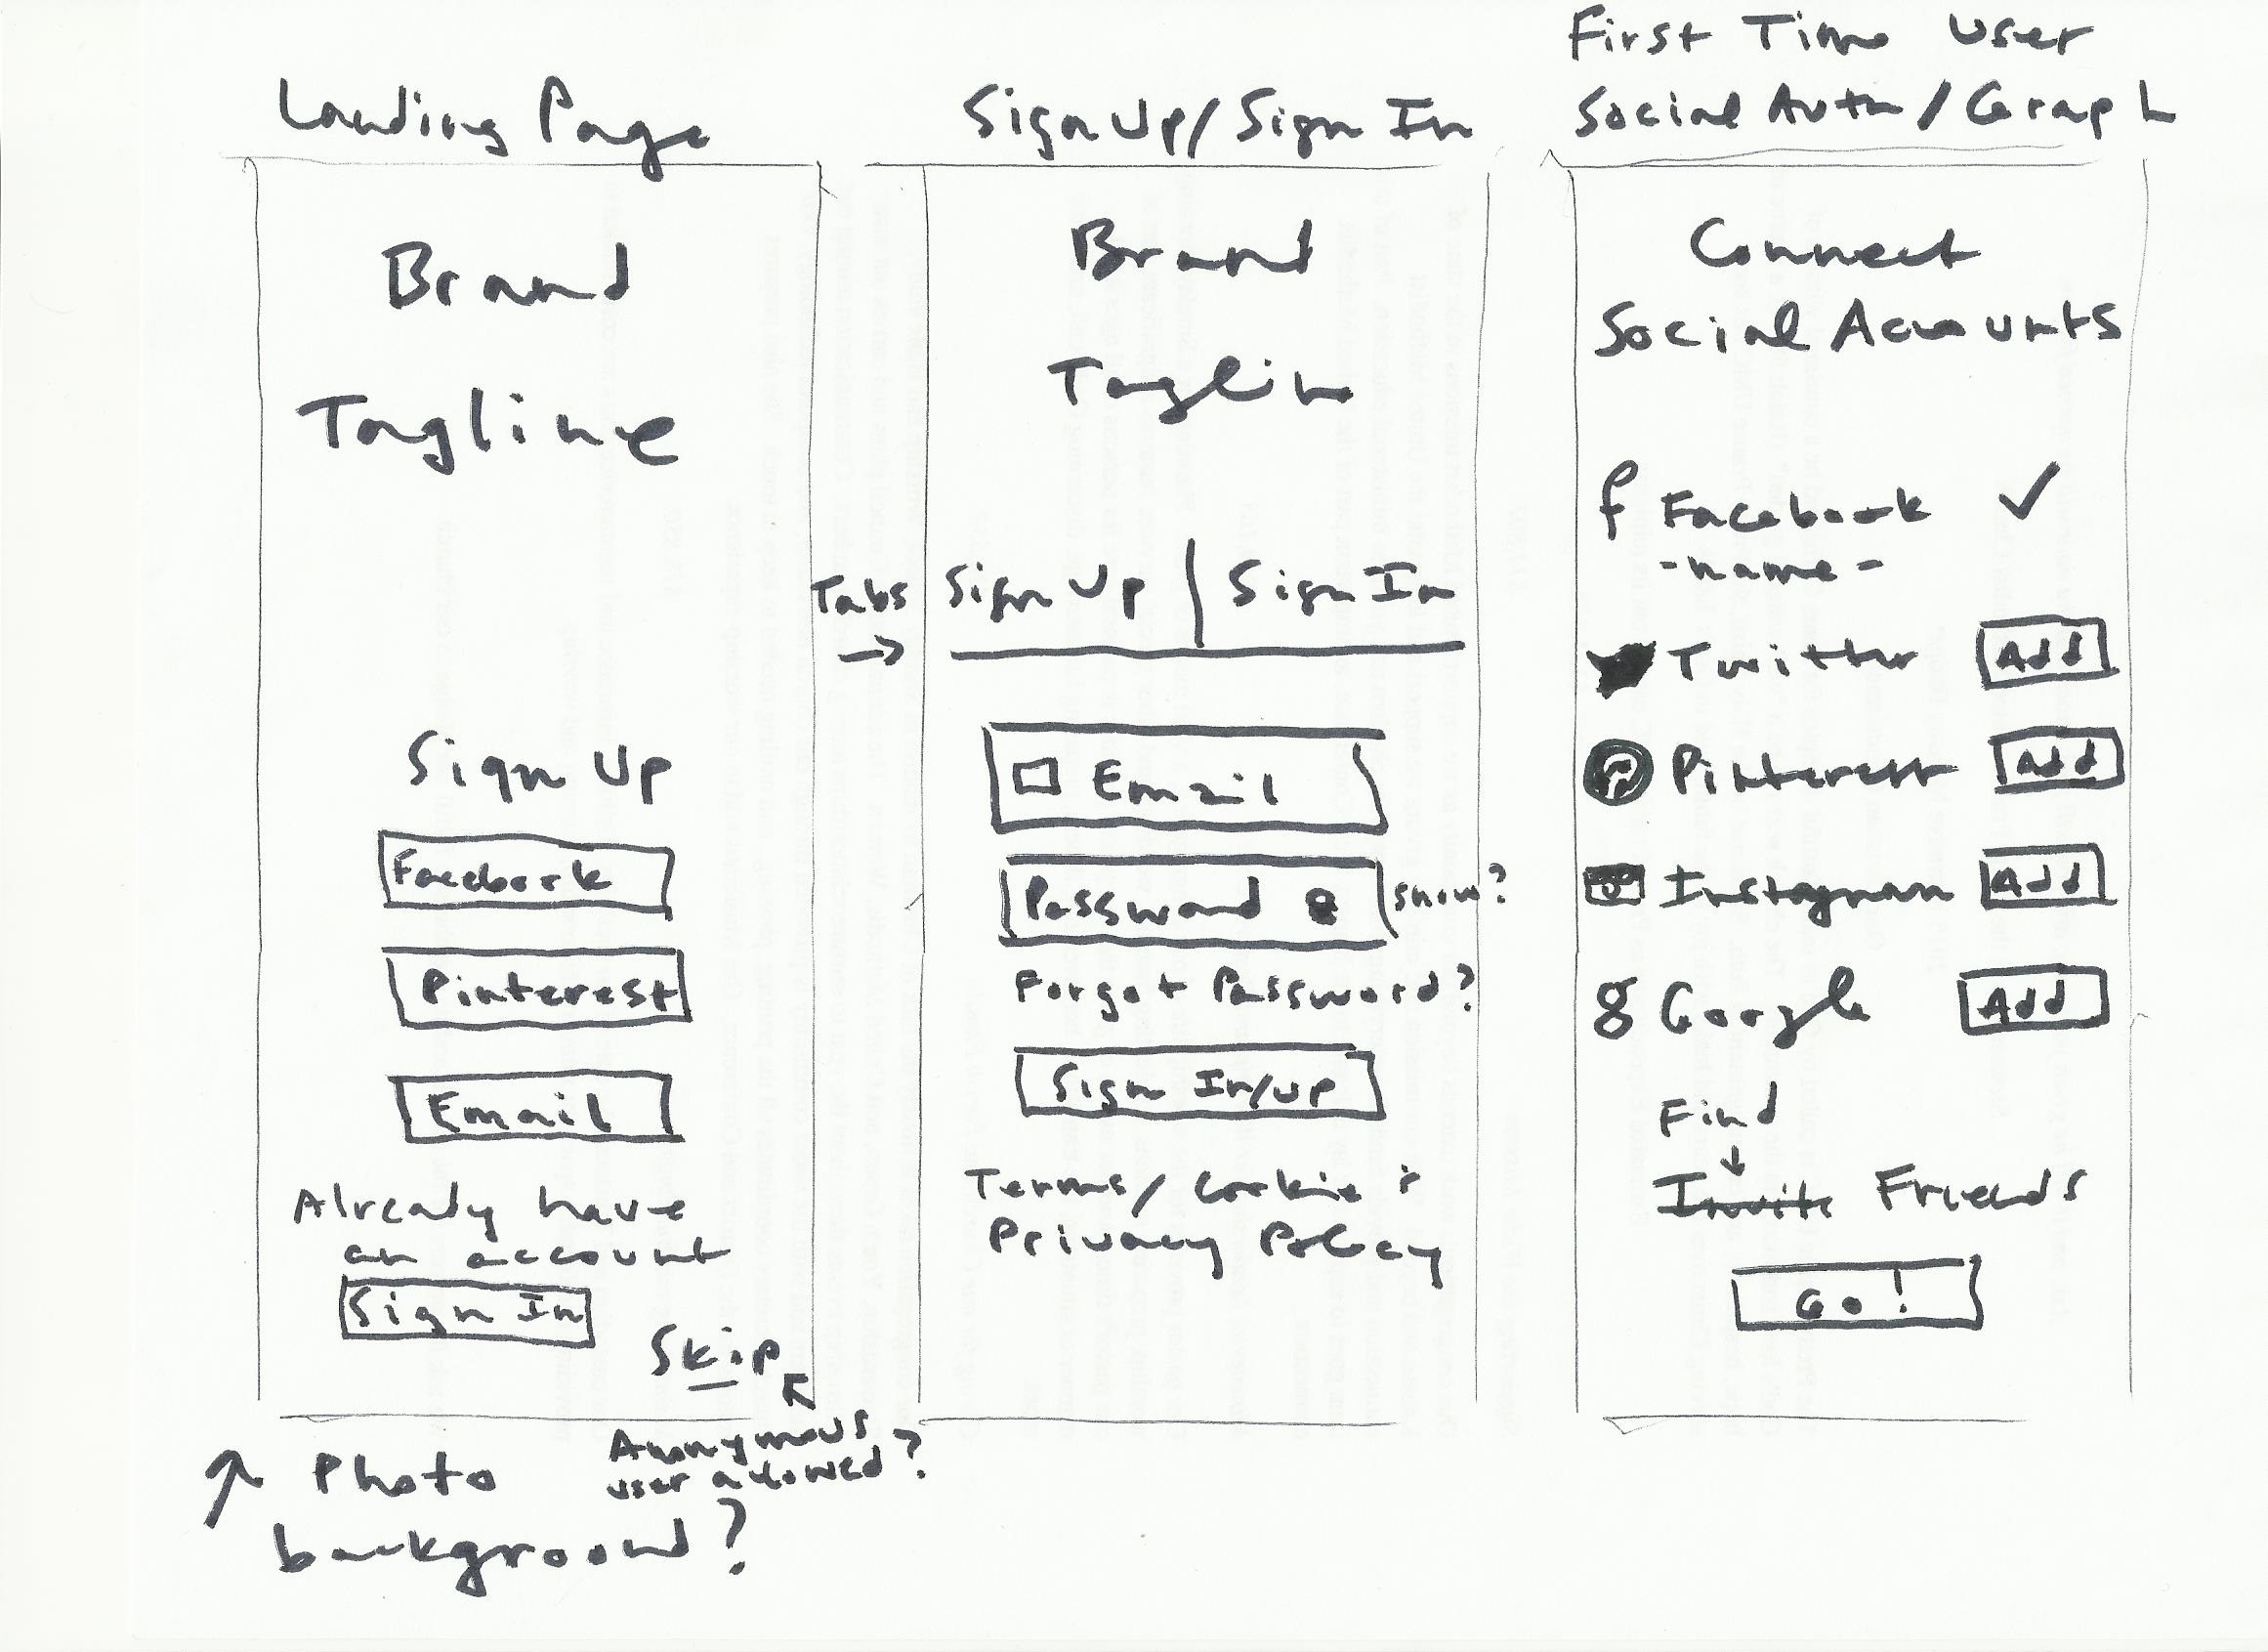 Landing Page
Brand
Tagline
Sign Up
Facebook
Pinterest
Email
Already have
an account
Sign In
Skip
Anonymous
user allowed?
Photo
background?
Sign Up/Sign In
Brand
Tagline
Tabs
Sign Up | Sign In
Email
Password
show?
Forgot Password?
Sign In/Up
Terms/Cookie +
Privacy Policy
First Time User
Social Auth/Graph
Connect
Social Accounts
f Facebook ✓
-name-
Twitter Add
Pinterest Add
Instagram Add
g Google Add
Find
Invite Friends
Go!